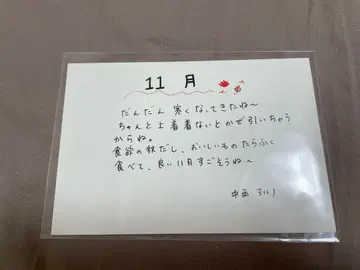 11 月
だんだん 寒くなってきたね〜
ちゃんと上着着ないとかぜ引いちゃう
からね。
食欲の秋だし、おいしいものたらふく
食べて、良い11月すごそうね〜
中西